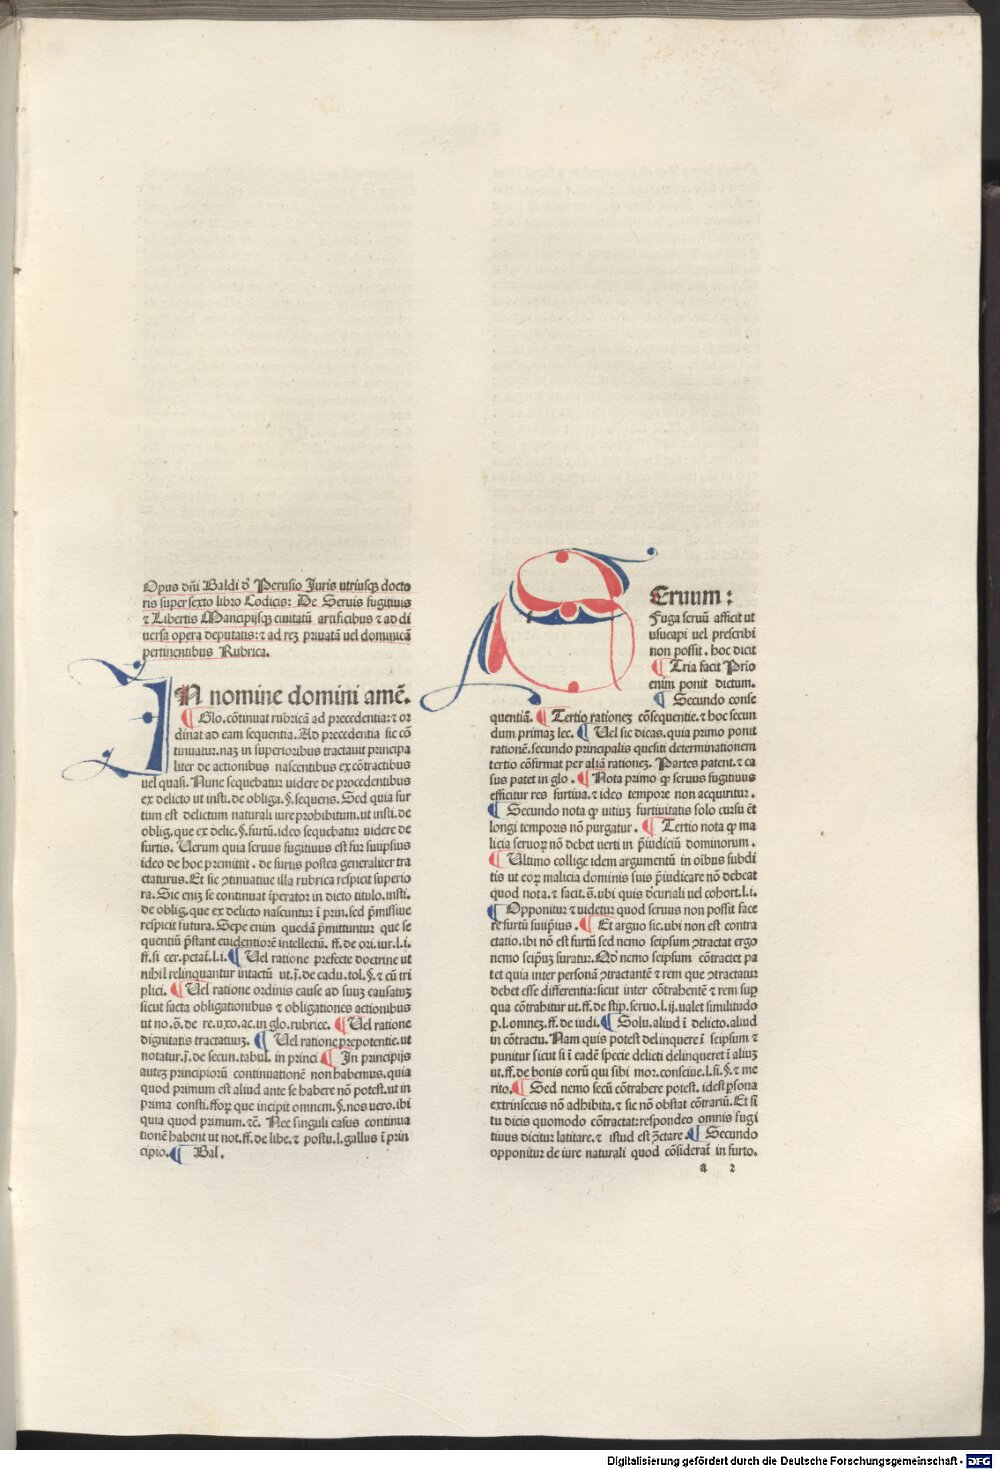 Opus dñi Baldi d̕ Perusio Juris utriusqꝫ docto
ris super sexto libro Codicis: De Seruis fugitiuis
⁊ Libertis Mancipijsqꝫ ciuitatũ artificibus ⁊ ad di
uersa opera deputatis: ⁊ ad reꝫ priuatã uel dominicã
pertinentibus Rubrica.
IN nomine domini amẽ.
¶ Glo. cõtinuat rubricã ad precedentia: ⁊ or
dinat ad eam sequentia. Ad precedentia sic cõ
tinuatur. naꝫ in superioribus tractauit principa
liter de actionibus nascentibus ex cõtractibus
uel quasi. Nunc sequebatur uidere de procedentibus
ex delicto ut insti. de obliga. §. sequens. Sed quia fur
tum est delictum naturali iure prohibitum. ut insti. de
oblig. que ex delic. §. furtũ. ideo sequebatur uidere de
furtis. Uerum quia seruus fugitiuus est fur suiipsius
ideo de hoc premittit. de furtis postea generaliter tra
ctaturus. Et sic ↄtinuatiue illa rubrica respicit superio
ra. Sic eniꝫ se continuat ĩperator in dicto titulo. insti.
de oblig. que ex delicto nascuntur ĩ prin. sed p̃missiue
respicit futura. Sepe enim quedã p̃mittuntur que se
quentiũ p̃stant euidentiorẽ intellectũ. ff. de ori. iur. l. i.
ff. si cer. petat̃. l. i. ¶ Uel ratione prefecte doctrine ut
nihil relinquantur intactũ ut. j. de cadu. tol. §. ⁊ cũ tri
plici. ¶ Uel ratione ordinis cause ad suuꝫ causatuꝫ
sicut facta obligationibus ⁊ obligationes actionibus
ut no. s̃. de re. uxo. ac. in glo. rubrice. ¶ Uel ratione
dignitatis tractatuuꝫ. ¶ Uel ratione prepotentie. ut
notatur. j. de secun. tabul. in princi ¶ In principijs
auteꝫ principiorũ continuationẽ non habemus. quia
quod primum est aliud ante se habere nõ potest. ut in
prima consti. fforꝝ que incipit omnem. §. nos uero. ibi
quia quod primum. ⁊c̃. Nec singuli casus continua
tionẽ habent ut not. ff. de libe. ⁊ postu. l. gallus ĩ prin
cipio. ¶ Bal.
SEruum:
Fuga seruũ afficit ut
usucapi uel prescribi
non possit. hoc dicit
¶ Tria facit Prio
enim ponit dictum.
¶ Secundo conse
quentiã. ¶ Tertio rationeꝫ cõsequentie. ⁊ hoc secun
dum primaꝫ lec. ¶ Uel sic dicas. quia primo ponit
rationẽ. secundo principalis quesiti determinationem
tertio cõfirmat per aliã rationeꝫ. Partes patent. ⁊ ca
sus patet in glo. ¶ Nota primo ꝙ seruus fugitiuus
efficitur res furtiua. ⁊ ideo tempore non acquiritur.
¶ Secundo nota ꝙ uitiuꝫ furtiuitatis solo cursu ẽt
longi temporis nõ purgatur. ¶ Tertio nota ꝙ ma
licia seruorꝫ nõ debet uerti in p̃iudiciũ dominorum.
¶ Ultimo collige idem argumentũ in oĩbus subdi
tis ut eorꝫ malicia dominis suis p̃iudicare nõ debeat
quod nota. ⁊ facit. s̃. ubi quis dcuriali uel cohort. l. i.
¶ Opponitur ⁊ uidetur quod seruus non possit face
re furtũ suiip̃ius. ¶ Et arguo sic. ubi non est contra
ctatio. ibi nõ est furtũ sed nemo seipsum ↄtractat ergo
nemo seip̃uꝫ furatur. Qd̃ nemo seipsum cõtractet pa
tet quia inter personã ↄtractantẽ ⁊ rem que ↄtractatur
debet esse differentia: sicut inter cõtrahentẽ ⁊ rem sup̱
qua cõtrahitur ut. ff. de stip. seruo. l. ij. ualet similitudo
p̱. l. omneꝫ. ff. de iudi. ¶ Solu. aliud ĩ delicto. aliud
in cõtractu. Nam quis potest delinquere ĩ seipsum ⁊
punitur sicut si ĩ eadẽ specie delicti delinqueret ĩ aliuꝫ
ut. ff. de bonis eorũ qui sibi mor. consciue. l. fi. §. ⁊ me
rito. ¶ Sed nemo secũ cõtrahere potest. idest p̱sona
extrinsecus nõ adhibita. ⁊ sic nõ obstat cõtrariũ. Et si
tu dicis quomodo cõtractat: respondeo omnis fugi
tiuus dicitur latitare. ⁊ istud est ↄ̃tare. ¶ Secundo
opponitur de iure naturali quod cõsiderat̃ in furto.
a 2
Digitalisierung gefördert durch die Deutsche Forschungsgemeinschaft - DFG